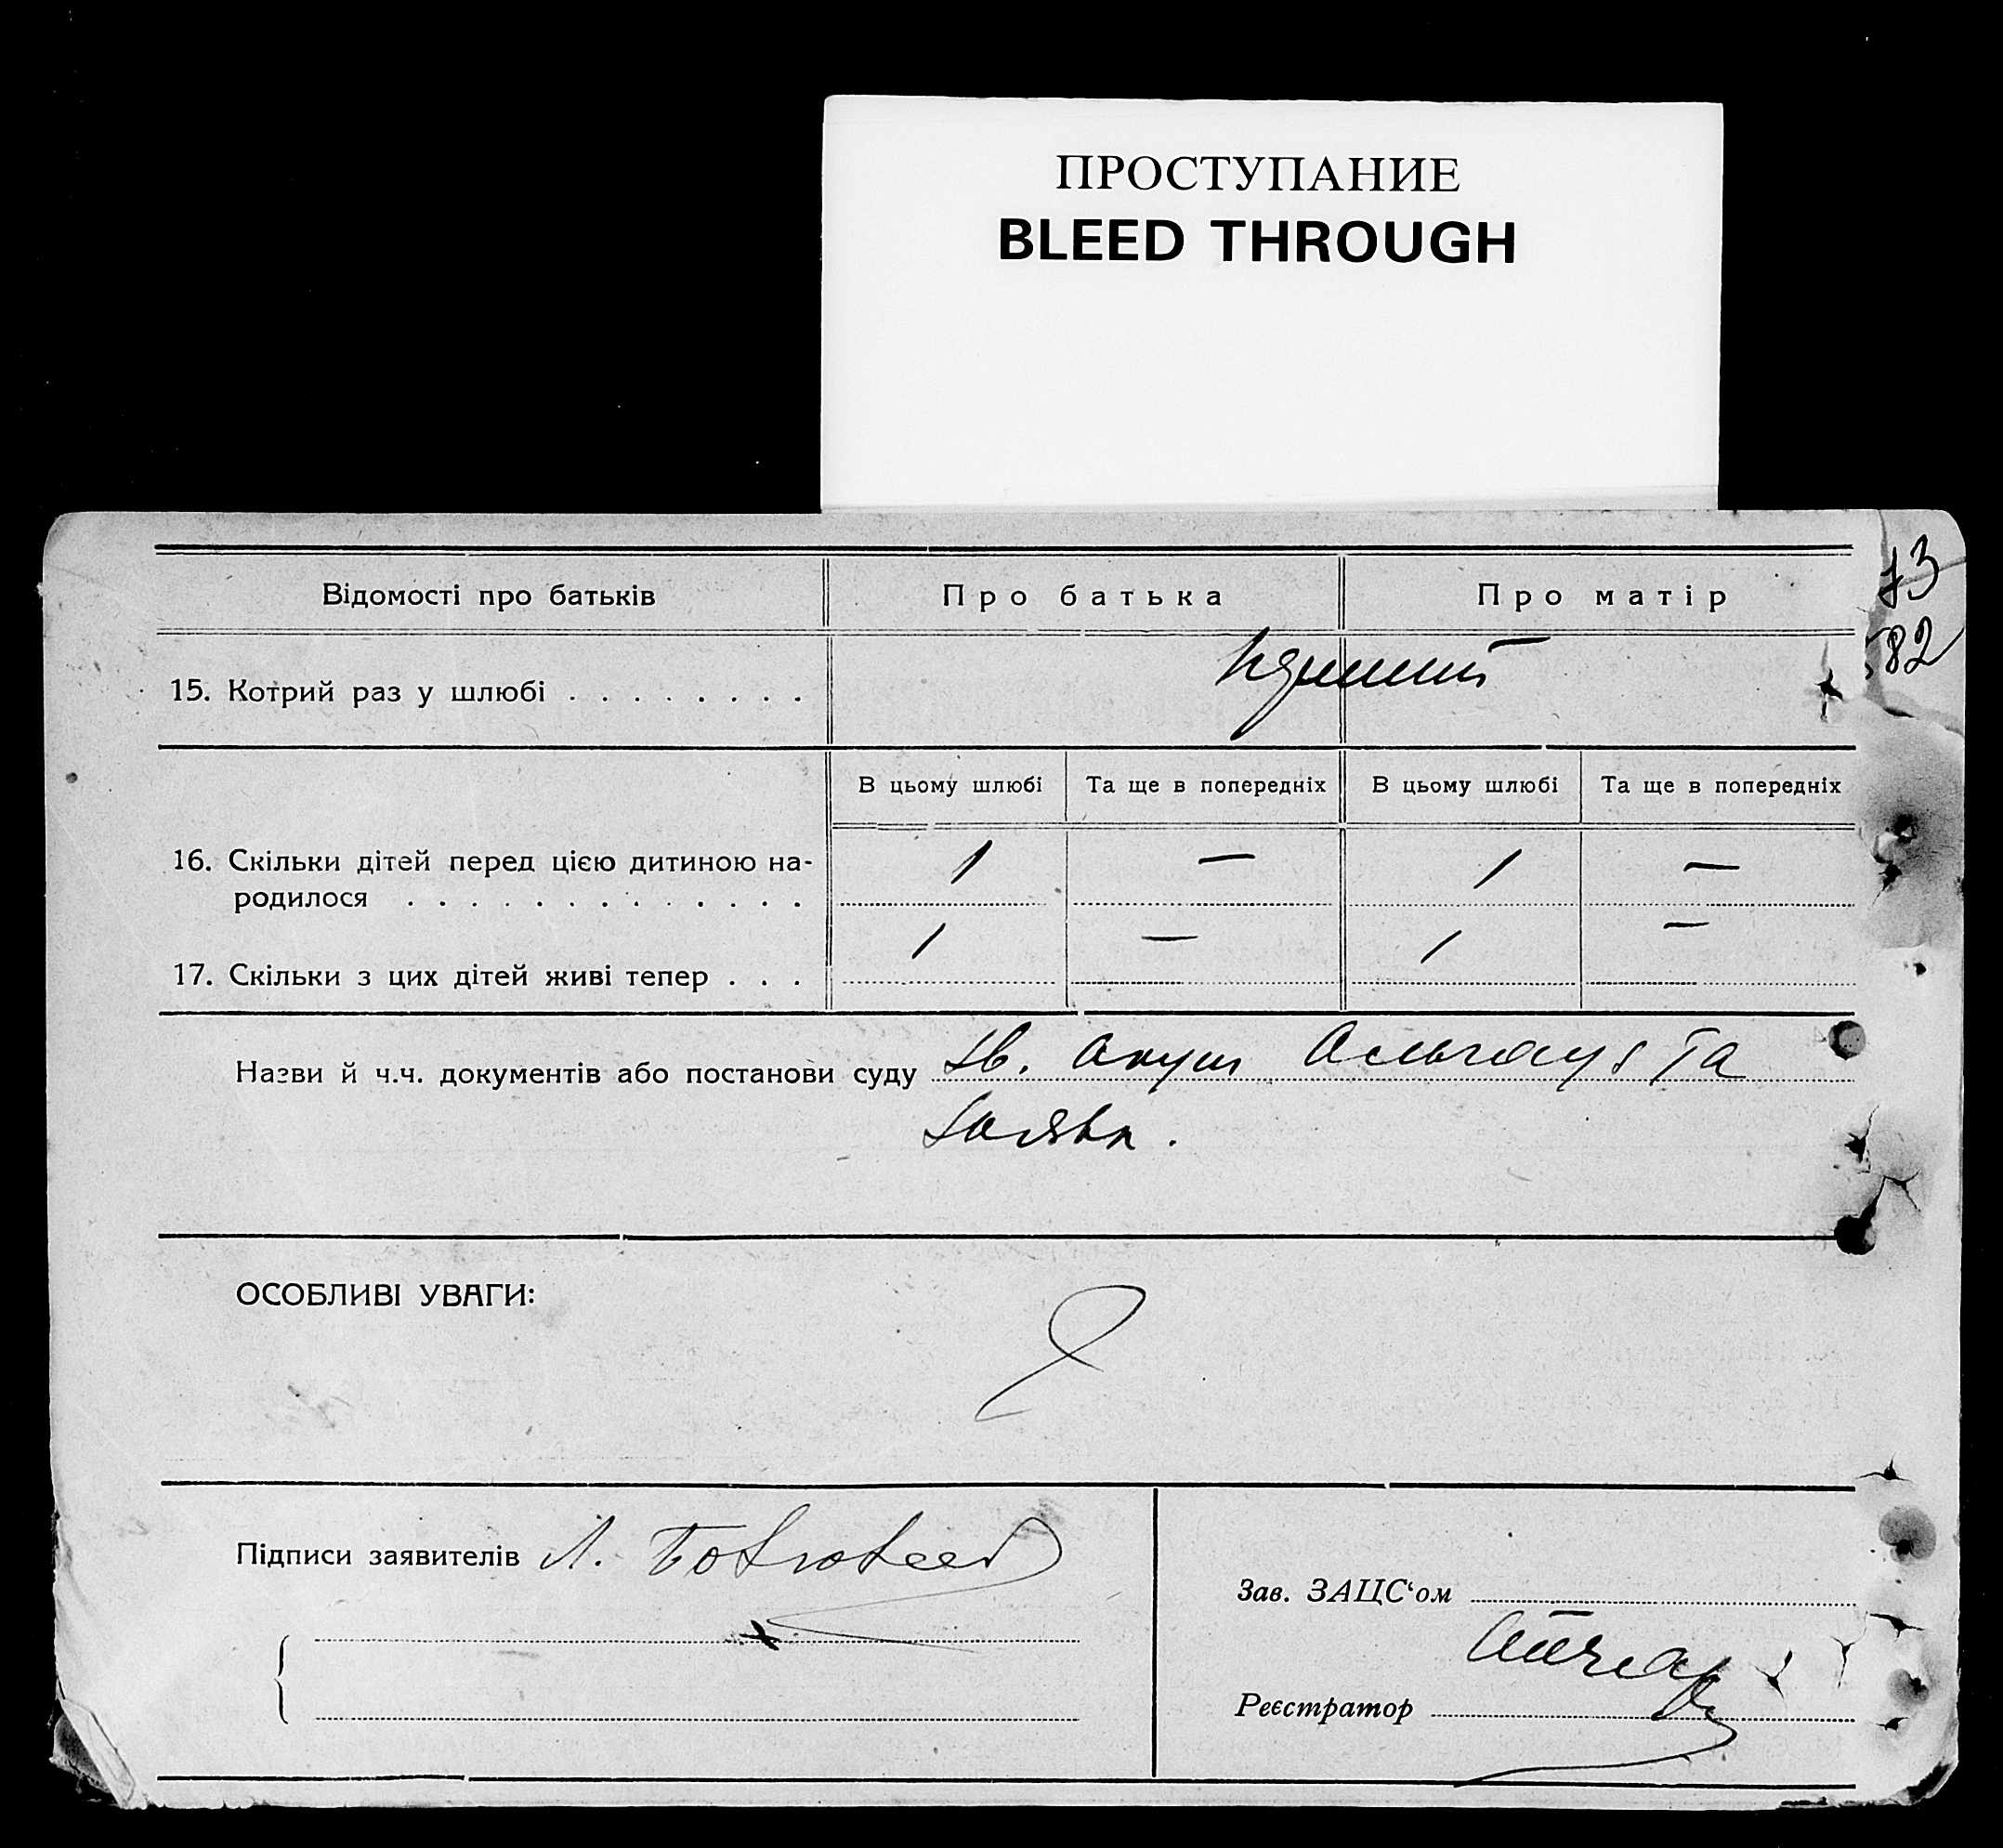 ПРОСТУПАНИЕ
BLEED THROUGH
73
82
Відомості про батьків Про батька Про матір
15. Котрий раз у шлюбі . . . . . . . .
В цьому шлюбі Та ще в попередніх В цьому шлюбі Та ще в попередніх
16. Скільки дітей перед цією дитиною на-
родилося . . . . . . . . . . . . . 1 — 1 —
17. Скільки з цих дітей живі тепер . . . 1 — 1 —
Назви й ч.ч. документів або постанови суду та
ОСОБЛИВІ УВАГИ:
Підписи заявителів Л.
Зав. ЗАЦС‘ом
Реєстратор